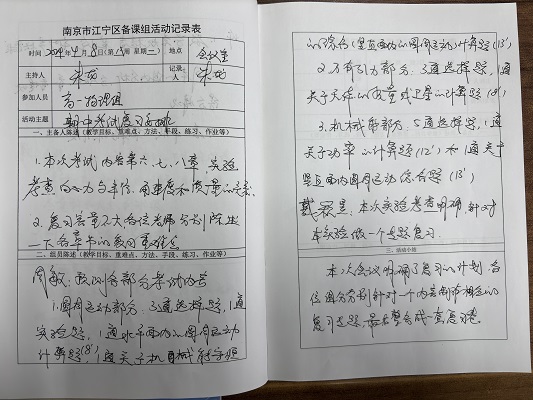 南京市江宁区备课组活动记录表
时间 2024年4月8日(第 周 星期一) 地点 会议室
主持人 记录人
参加人员 高一物理组
活动主题 期中考试复习安排
一、主备人陈述(教学目标、重难点、方法、手段、练习、作业等)
1.本次考试内容第六、七、八章,实验
考查向心力与半径、角速度和质量的关系。
2.复习容量不大各位老师分别陈述
一下各章节的复习重难点
二、组员陈述(教学目标、重难点、方法、手段、练习、作业等)
周敏:
1.圆周运动部分:3道选择题,1道
实验题,1道水平面内的圆周运动
计算题(8'),1道关于机械能守恒
的综合(竖直面内的圆周运动)计算题(15')
2.万有引力部分:3道选择题,1道
关于天体的质量或卫星的计算题(8')
3.机械能部分:5道选择题,1道
关于功率的计算题(12')和1道关于
竖直面内圆周运动综合题(15')
本次实验考查明确,针对
本实验做一个专题复习.
三、活动小结
本次会议明确了复习的计划,各
位组员分别针对一个内容制作相应的
复习专题,最后整合成一套复习卷.